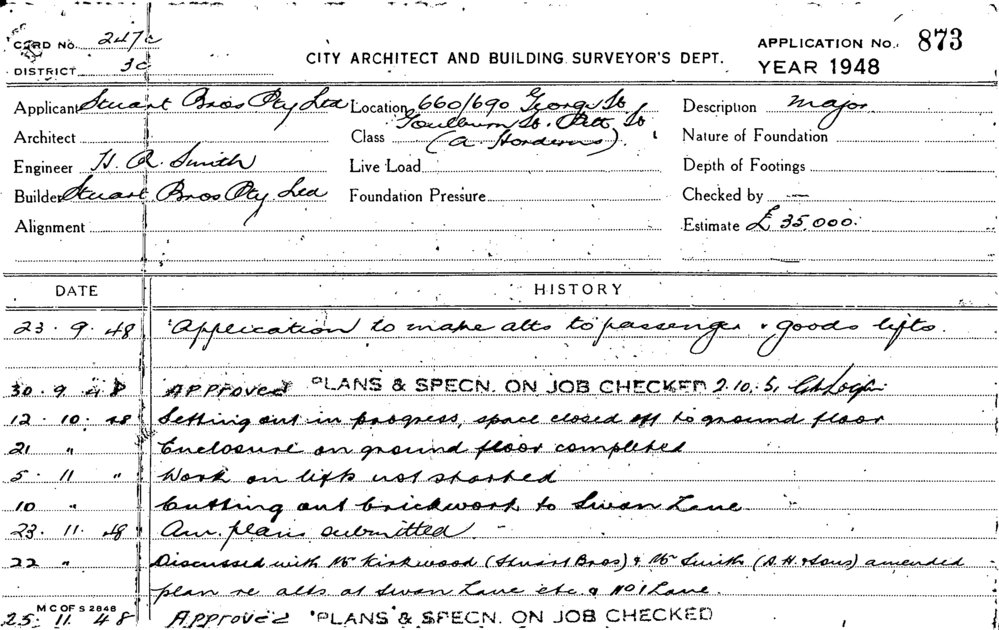 CARD NO. 247c
DISTRICT 3c
CITY ARCHITECT AND BUILDING SURVEYOR'S DEPT.
APPLICATION No. 873
YEAR 1948
Applicant Stuart Bros Pty Ltd
Architect
Engineer H. A. Smith
Builder Stuart Bros Pty. Ltd
Alignment
Location 660/690 George St
Goulburn St. Pitt St
Class (A Horderns)
Live Load
Foundation Pressure
Description major
Nature of Foundation
Depth of Footings
Checked by —
Estimate £ 35,000.
DATE HISTORY
23. 9. 48 Application to make alts to passenger & goods lifts.
30. 9. 48 APPROVED PLANS & SPECN. ON JOB CHECKED 2.10.51
12. 10. 48 Setting out in progress, space closed off to ground floor
21 " Enclosure on ground floor completed
5. 11 " Work on lifts not started
10 " Cutting out brickwork to Swan Lane.
23. 11. 48 Am. plans submitted
22 " Discussed with Mr Kirkwood (Stuart Bros) & Mr Smith (A.H & Sons) amended
plan re alts at Swan Lane etc & No 1 Lane.
M C OF S 2848
25. 11. 48 APPROVED PLANS & SPECN. ON JOB CHECKED